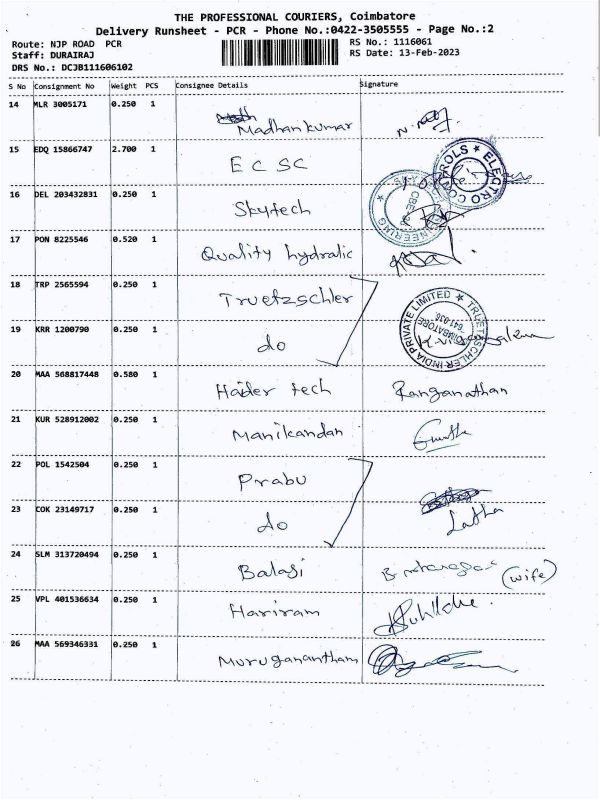 THE PROFESSIONAL COURIERS, Coimbatore
Delivery Runsheet - PCR - Phone No.:0422-3505555 - Page No.:2
Route: NJP ROAD PCR
RS No.: 1116061
Staff: DURAIRAJ
RS Date: 13-Feb-2023
DRS No.: DCJB111606102
S No Consignment No Weight PCS Consignee Details Signature
14 MLR 3005171 0.250 1 Madhankumar
15 EDQ 15866747 2.700 1 E C SC
16 DEL 203432831 0.250 1 Skytech
17 PON 8225546 0.520 1 Quality hydralic
18 TRP 2565594 0.250 1 Truetzschler
19 KRR 1200790 0.250 1 do
20 MAA 568817448 0.580 1 Haider tech Ranganathan
21 KUR 528912002 0.250 1 Manikandan
22 POL 1542504 0.250 1 Prabu
23 COK 23149717 0.250 1 do Latha
24 SLM 313720494 0.250 1 Balaji (wife)
25 VPL 401536634 0.250 1 Hariram
26 MAA 569346331 0.250 1 Muruganantham